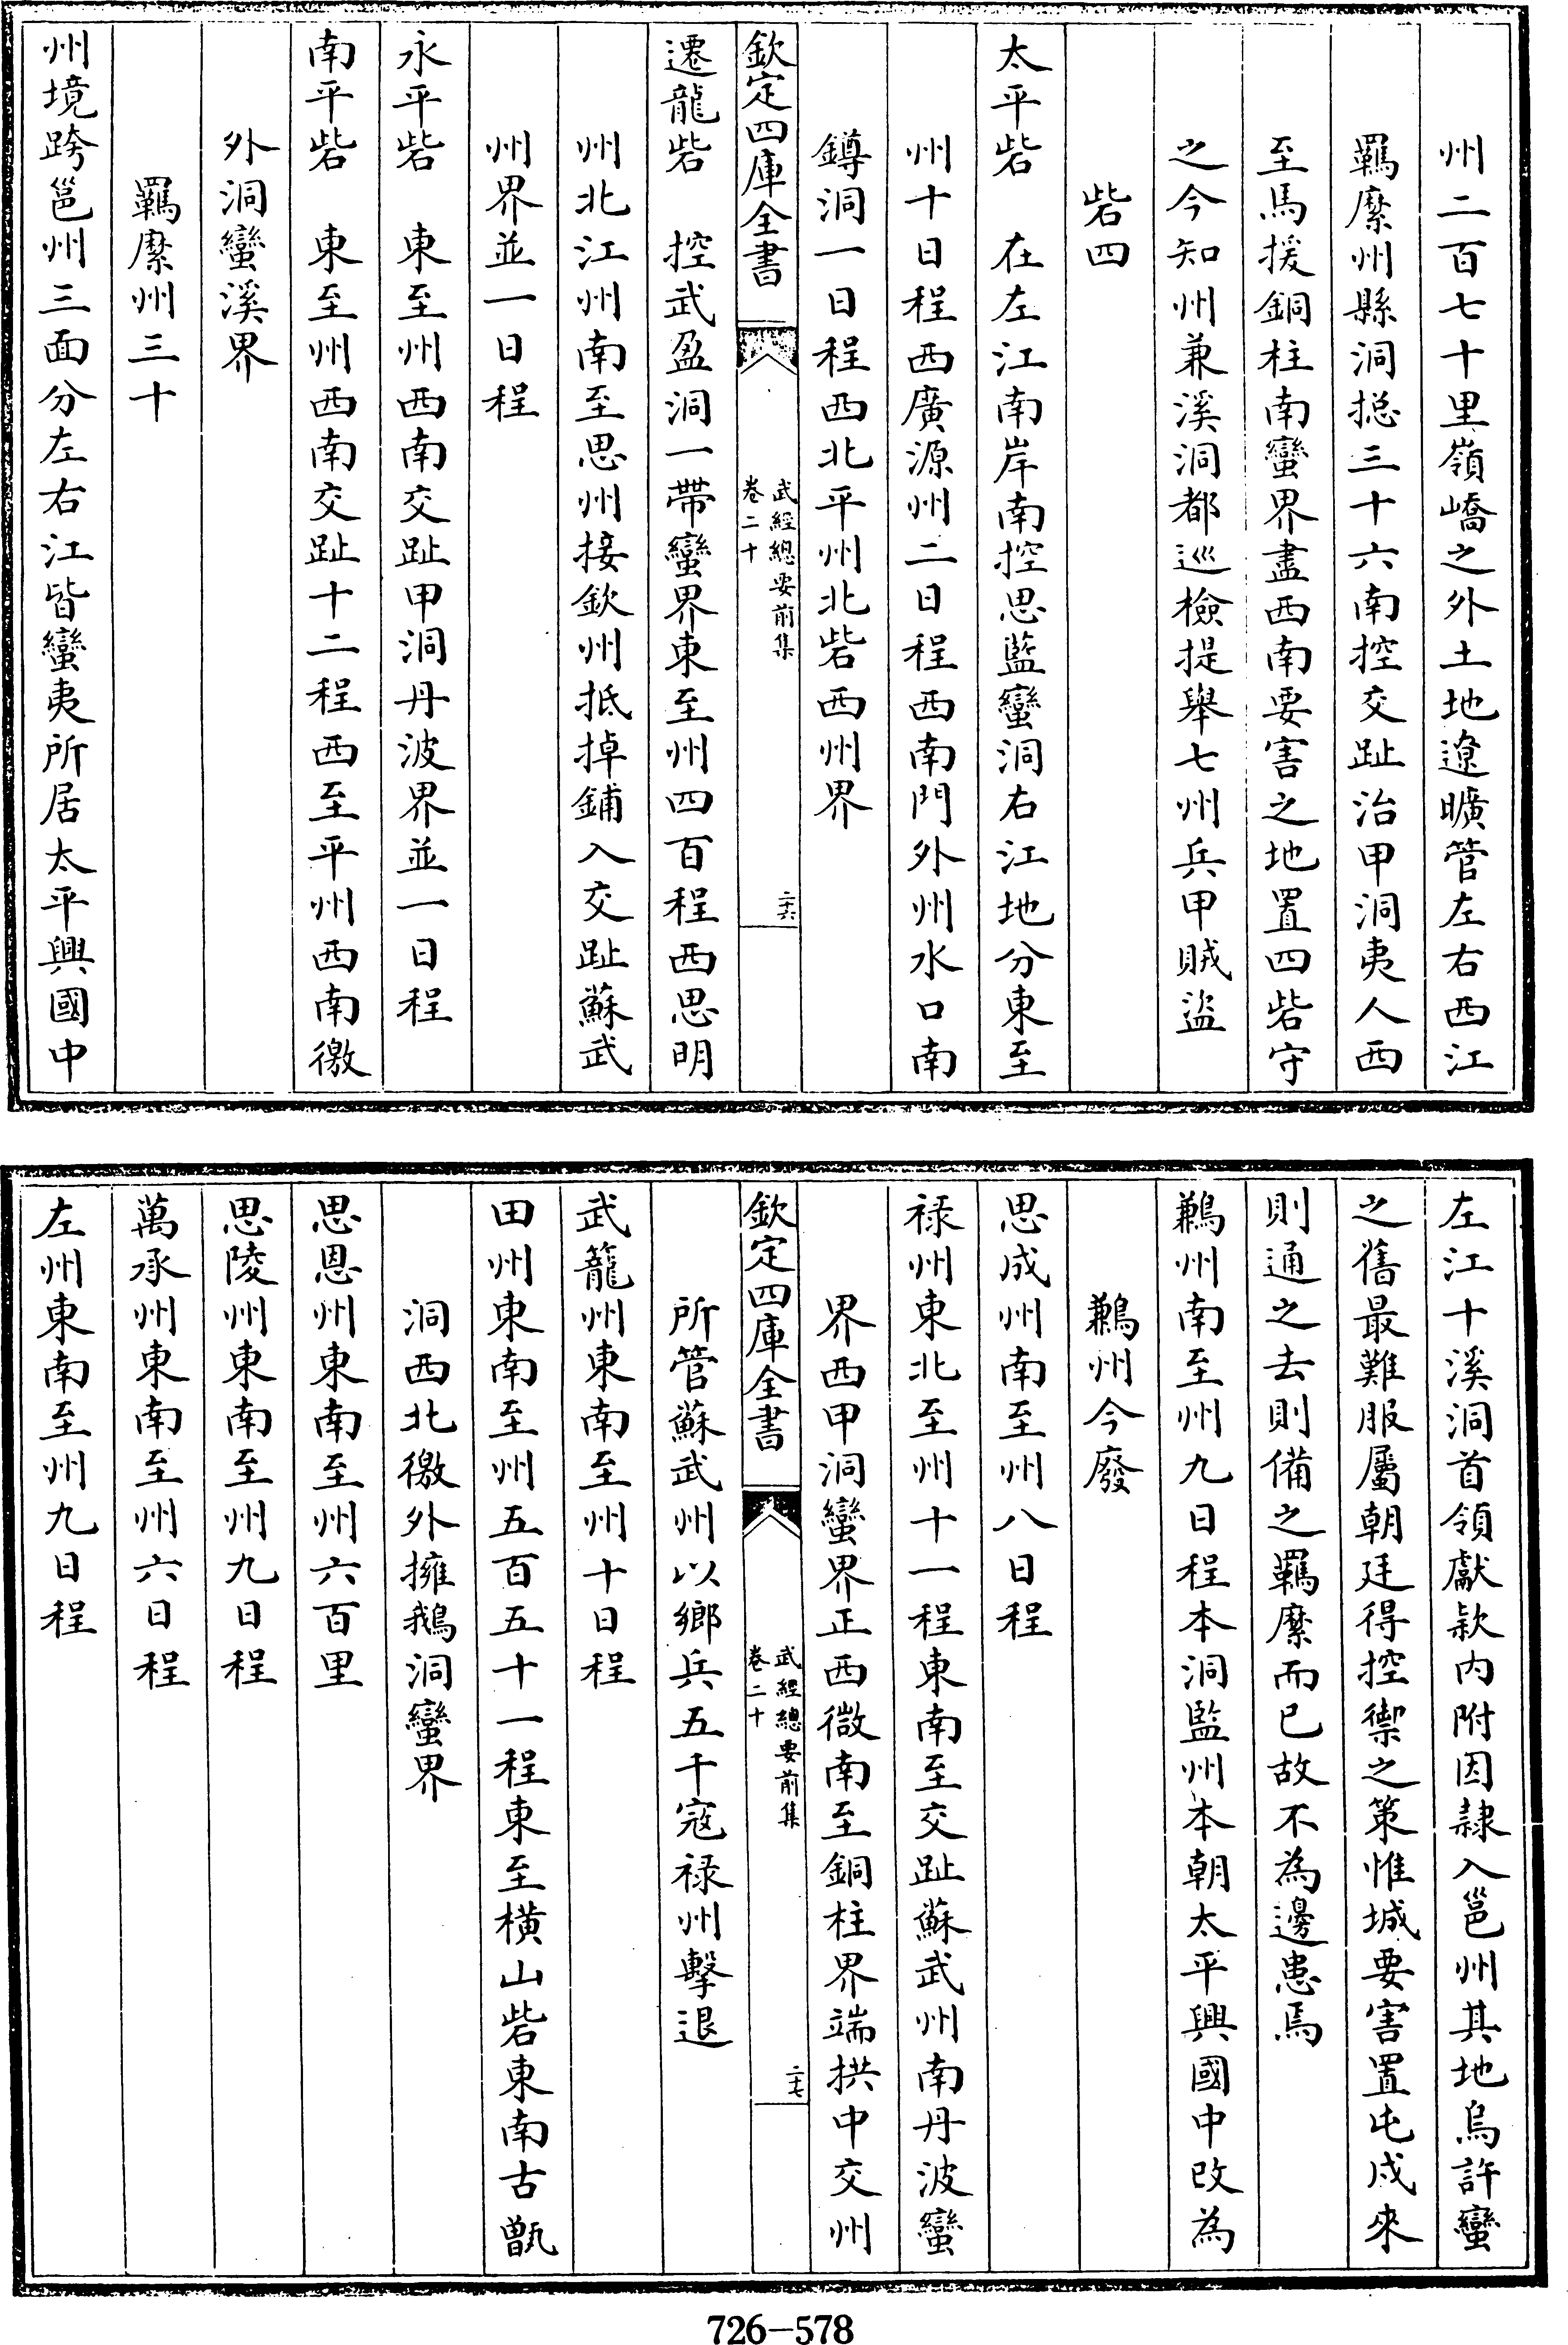 州二百七十里嶺嶠之外土地遼曠管左右西江
羈縻州縣洞捴三十六南控交趾治甲洞夷人西
至馬援銅柱南蠻界盡西南要害之地置四砦守
之今知州兼溪洞都巡檢提舉七州兵甲賊盜
砦四
太平砦　在左江南岸南控思藍蠻洞右江地分東至
州十日程西廣源州二日程西南門外州水口南
鐏洞一日程西北平州北砦西州界
欽定四庫全書
武經總要前集
卷二十
二十六
遷龍砦　控武盈洞一帶蠻界東至州四百程西思明
州北江州南至思州接欽州抵掉鋪入交趾蘇武
州界並一日程
永平砦　東至州西南交趾甲洞丹波界並一日程
南平砦　東至州西南交趾十二程西至平州西南徼
外洞蠻溪界
羈縻州三十
州境跨邕州三面分左右江皆蠻夷所居太平興國中
左江十溪洞首領獻欵内附因隷入邕州其地烏許蠻
之舊最難服屬朝廷得控禦之策惟城要害置屯戍來
則通之去則備之羈縻而已故不為邊患焉
鶼州南至州九日程本洞監州本朝太平興國中改為
鶼州今廢
思成州南至州八日程
禄州東北至州十一程東南至交趾蘇武州南丹波蠻
界西甲洞蠻界正西微南至銅柱界端拱中交州
欽定四庫全書
武經總要前集
卷二十
二十七
所管蘇武州以鄉兵五千寇禄州擊退
武籠州東南至州十日程
田州東南至州五百五十一程東至横山砦東南古甑
洞西北徼外擁鵝洞蠻界
思恩州東南至州六百里
思陵州東南至州九日程
萬承州東南至州六日程
左州東南至州九日程
726-578